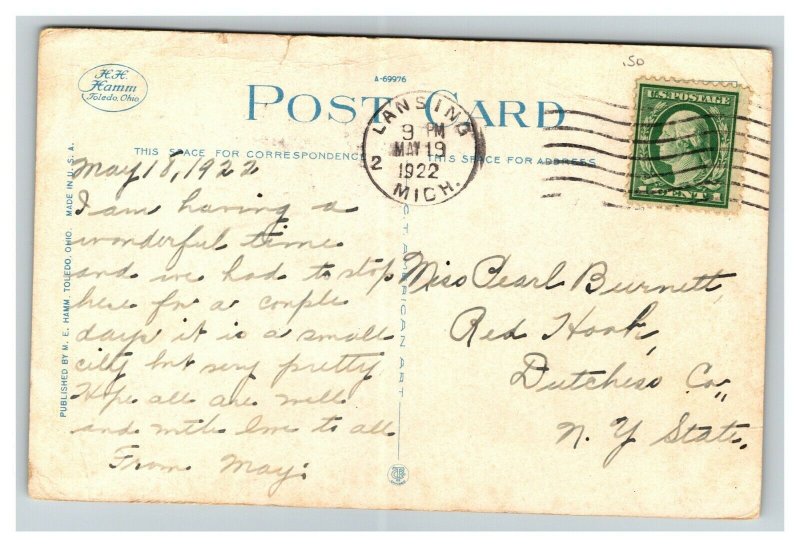 .50
H.H.
Hamm
Toledo, Ohio.
A-69976
POST CARD
LANSING
9 PM
MAY 19
2
1922
MICH.
U.S. POSTAGE
1 CENT 1
THIS SPACE FOR CORRESPONDENCE
THIS SPACE FOR ADDRESS
PUBLISHED BY M. E. HAMM, TOLEDO, OHIO. MADE IN U.S.A.
CT AMERICAN ART
May 18, 1922
I am having a
wonderful time
and we had to stop
here for a couple
days it is a small
city but very pretty
Hope all are well
and with love to all
From May.
Miss Pearl Burnett,
Red Hook,
Dutchess Co.,
N. Y State.